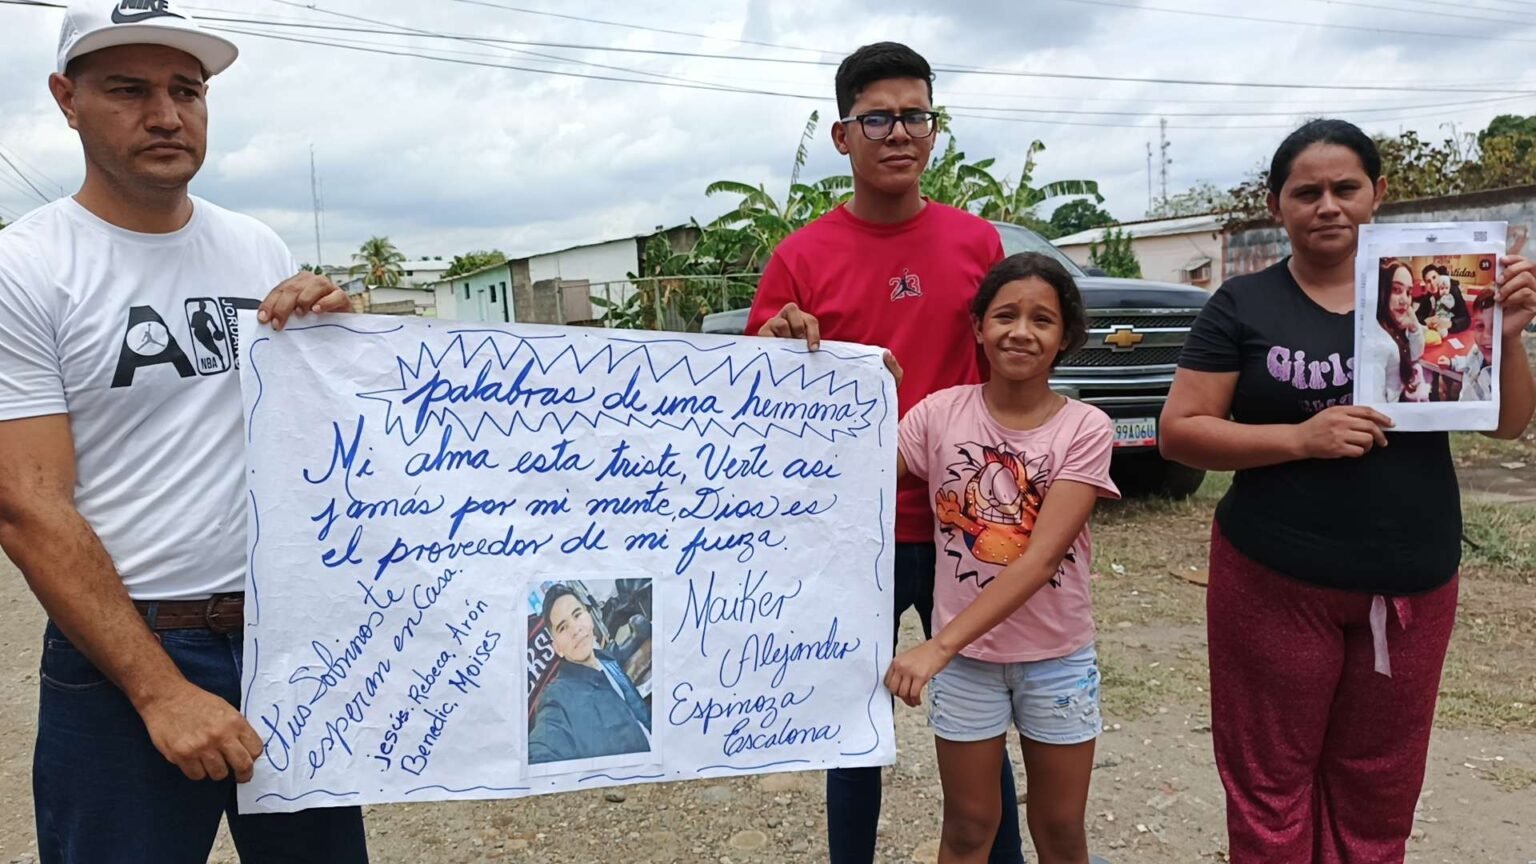 NIKE
A
NBA
JORDAN
23
palabras de una hermana.
Mi alma esta triste, Verte asi
jamás por mi mente, Dios es
el proveedor de mi fuerza.
tus Sobrinos te
esperan en Casa.
jesús. Rebeca. Arón
Benedic. Moises
Maiker
Alejandro
Espinoza
Escalona.
99A06U
Girls